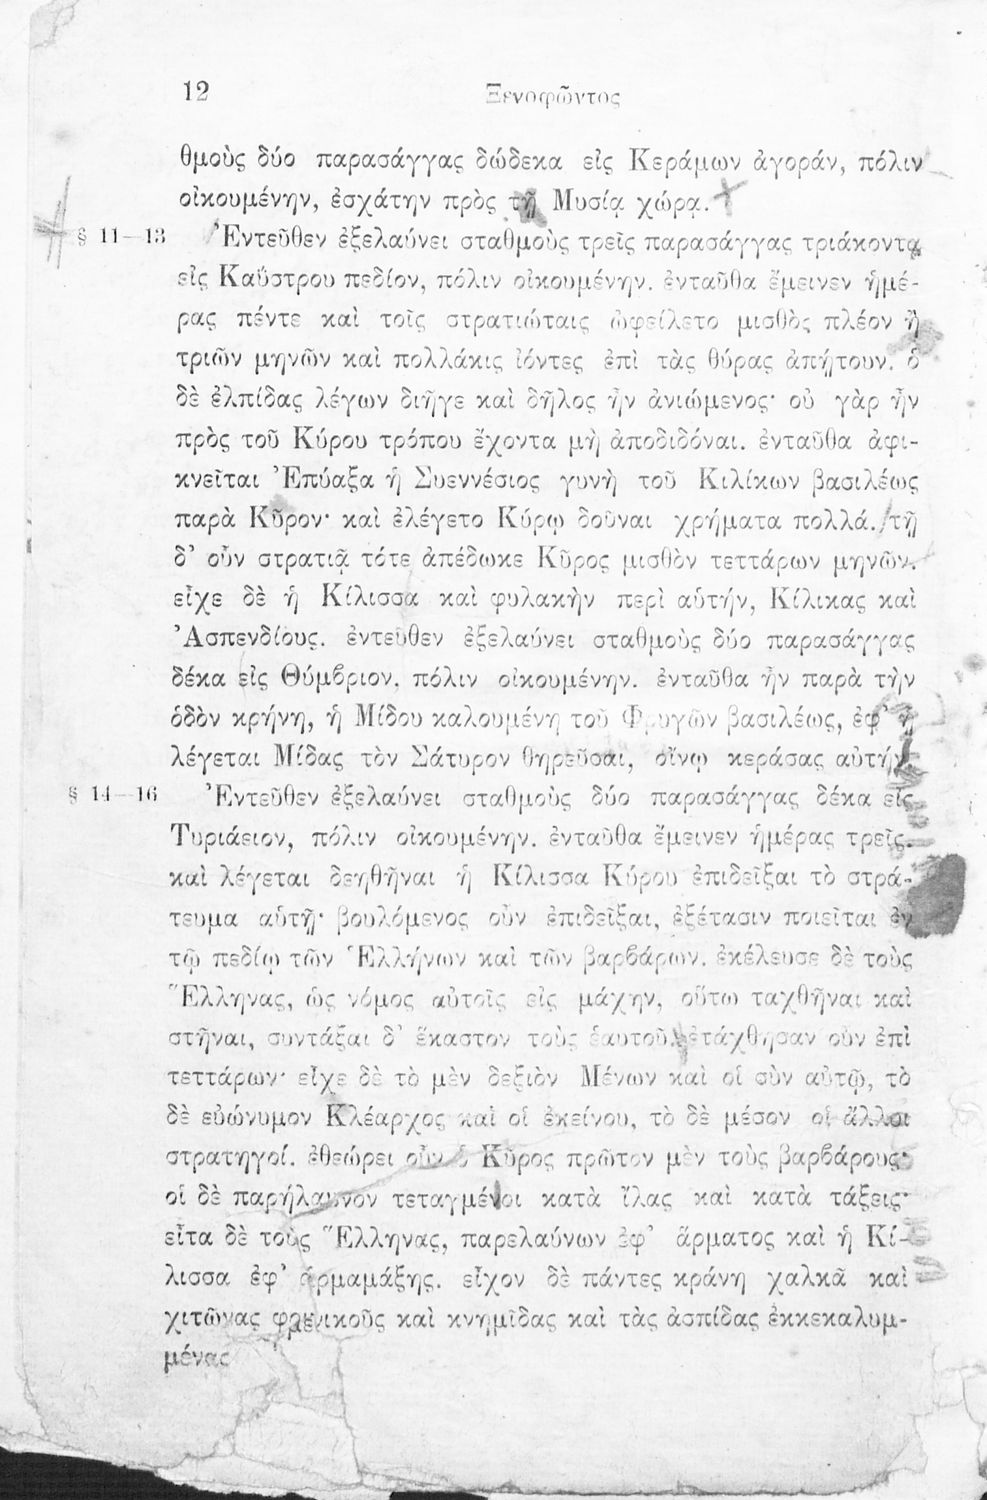 12 Ξενοφῶντος
θμοὺς δύο παρασάγγας δώδεκα εἰς Κεράμων ἀγοράν, πόλιν
οἰκουμένην, ἐσχάτην πρὸς τῇ Μυσίᾳ χώρᾳ.
§ 11—13 Ἐντεῦθεν ἐξελαύνει σταθμοὺς τρεῖς παρασάγγας τριάκοντα
εἰς Καΰστρου πεδίον, πόλιν οἰκουμένην. ἐνταῦθα ἔμεινεν ἡμέ-
ρας πέντε καὶ τοῖς στρατιώταις ὠφείλετο μισθὸς πλέον ἢ
τριῶν μηνῶν καὶ πολλάκις ἰόντες ἐπὶ τὰς θύρας ἀπῄτουν. ὁ
δὲ ἐλπίδας λέγων διῆγε καὶ δῆλος ἦν ἀνιώμενος· οὐ γὰρ ἦν
πρὸς τοῦ Κύρου τρόπου ἔχοντα μὴ ἀποδιδόναι. ἐνταῦθα ἀφι-
κνεῖται Ἐπύαξα ἡ Συεννέσιος γυνὴ τοῦ Κιλίκων βασιλέως
παρὰ Κῦρον· καὶ ἐλέγετο Κύρῳ δοῦναι χρήματα πολλά. τῇ
δ’ οὖν στρατιᾷ τότε ἀπέδωκε Κῦρος μισθὸν τεττάρων μηνῶν.
εἶχε δὲ ἡ Κίλισσα καὶ φυλακὴν περὶ αὑτήν, Κίλικας καὶ
Ἀσπενδίους. ἐντεῦθεν ἐξελαύνει σταθμοὺς δύο παρασάγγας
δέκα εἰς Θύμβριον, πόλιν οἰκουμένην. ἐνταῦθα ἦν παρὰ τὴν
ὁδὸν κρήνη, ἡ Μίδου καλουμένη τοῦ Φρυγῶν βασιλέως, ἐφ’ ᾗ
λέγεται Μίδας τὸν Σάτυρον θηρεῦσαι, οἴνῳ κεράσας αὐτήν.
§ 14—16 Ἐντεῦθεν ἐξελαύνει σταθμοὺς δύο παρασάγγας δέκα εἰς
Τυριάειον, πόλιν οἰκουμένην. ἐνταῦθα ἔμεινεν ἡμέρας τρεῖς.
καὶ λέγεται δεηθῆναι ἡ Κίλισσα Κύρου ἐπιδεῖξαι τὸ στρά-
τευμα αὑτῇ· βουλόμενος οὖν ἐπιδεῖξαι, ἐξέτασιν ποιεῖται ἐν
τῷ πεδίῳ τῶν Ἑλλήνων καὶ τῶν βαρβάρων. ἐκέλευσε δὲ τοὺς
Ἕλληνας, ὡς νόμος αὐτοῖς εἰς μάχην, οὕτω ταχθῆναι καὶ
στῆναι, συντάξαι δ’ ἕκαστον τοὺς ἑαυτοῦ. ἐτάχθησαν οὖν ἐπὶ
τεττάρων· εἶχε δὲ τὸ μὲν δεξιὸν Μένων καὶ οἱ σὺν αὐτῷ, τὸ
δὲ εὐώνυμον Κλέαρχος καὶ οἱ ἐκείνου, τὸ δὲ μέσον οἱ ἄλλοι
στρατηγοί. ἐθεώρει οὖν ὁ Κῦρος πρῶτον μὲν τοὺς βαρβάρους·
οἱ δὲ παρήλαυνον τεταγμένοι κατὰ ἴλας καὶ κατὰ τάξεις·
εἶτα δὲ τοὺς Ἕλληνας, παρελαύνων ἐφ’ ἅρματος καὶ ἡ Κί-
λισσα ἐφ’ ἁρμαμάξης. εἶχον δὲ πάντες κράνη χαλκᾶ καὶ
χιτῶνας φοινικοῦς καὶ κνημῖδας καὶ τὰς ἀσπίδας ἐκκεκαλυμ-
μένας